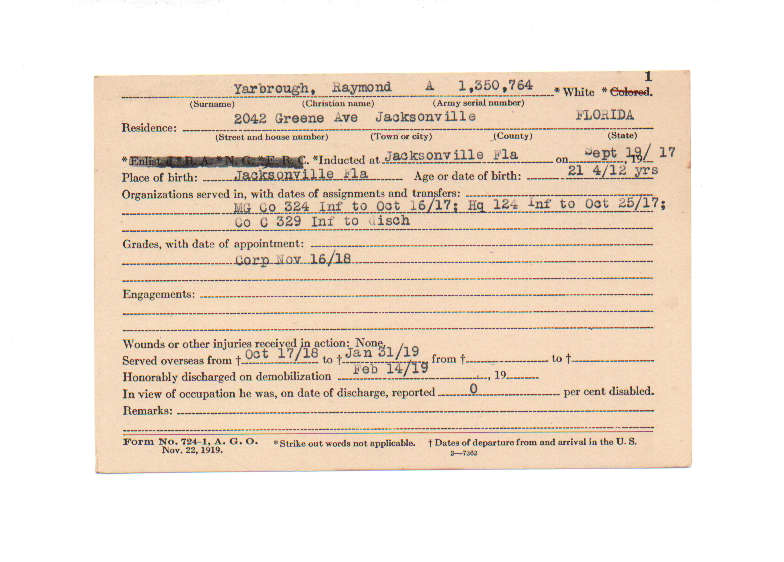 1
Yarbrough, Raymond A 1,350,764 * White * Colored.
(Surname) (Christian name) (Army serial number)
Residence: 2042 Greene Ave Jacksonville FLORIDA
(Street and house number) (Town or city) (County) (State)
* Enlisted R. A. * N. G. * E. R. C. *Inducted at Jacksonville Fla on Sept 19/ 17
Place of birth: Jacksonville Fla Age or date of birth: 21 4/12 yrs
Organizations served in, with dates of assignments and transfers:
MG Co 324 Inf to Oct 16/17; Hq 124 Inf to Oct 25/17;
Co C 329 Inf to disch
Grades, with date of appointment:
Corp Nov 16/18
Engagements:
Wounds or other injuries received in action: None.
Served overseas from † Oct 17/18 to † Jan 31/19 from † to †
Honorably discharged on demobilization Feb 14/19, 19
In view of occupation he was, on date of discharge, reported 0 per cent disabled.
Remarks:
Form No. 724-1, A. G. O. * Strike out words not applicable. † Dates of departure from and arrival in the U. S.
Nov. 22, 1919. 3—7363